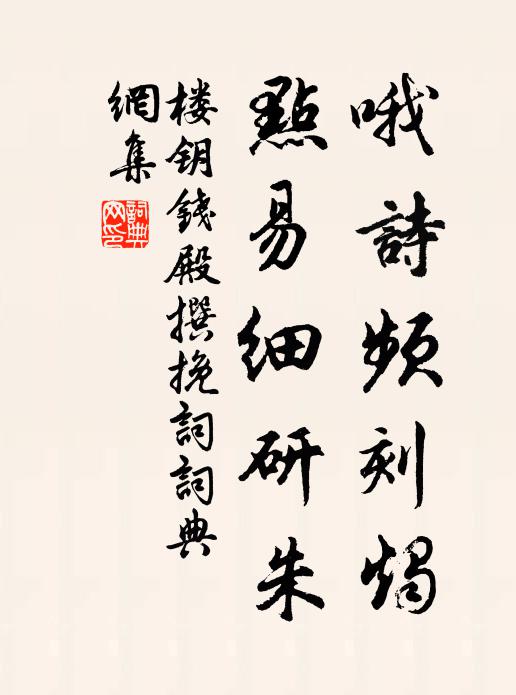 哦詩頻刻燭
點易細研朱
楼钥錢殿撰挽詞詞典
網集
詞典
网印